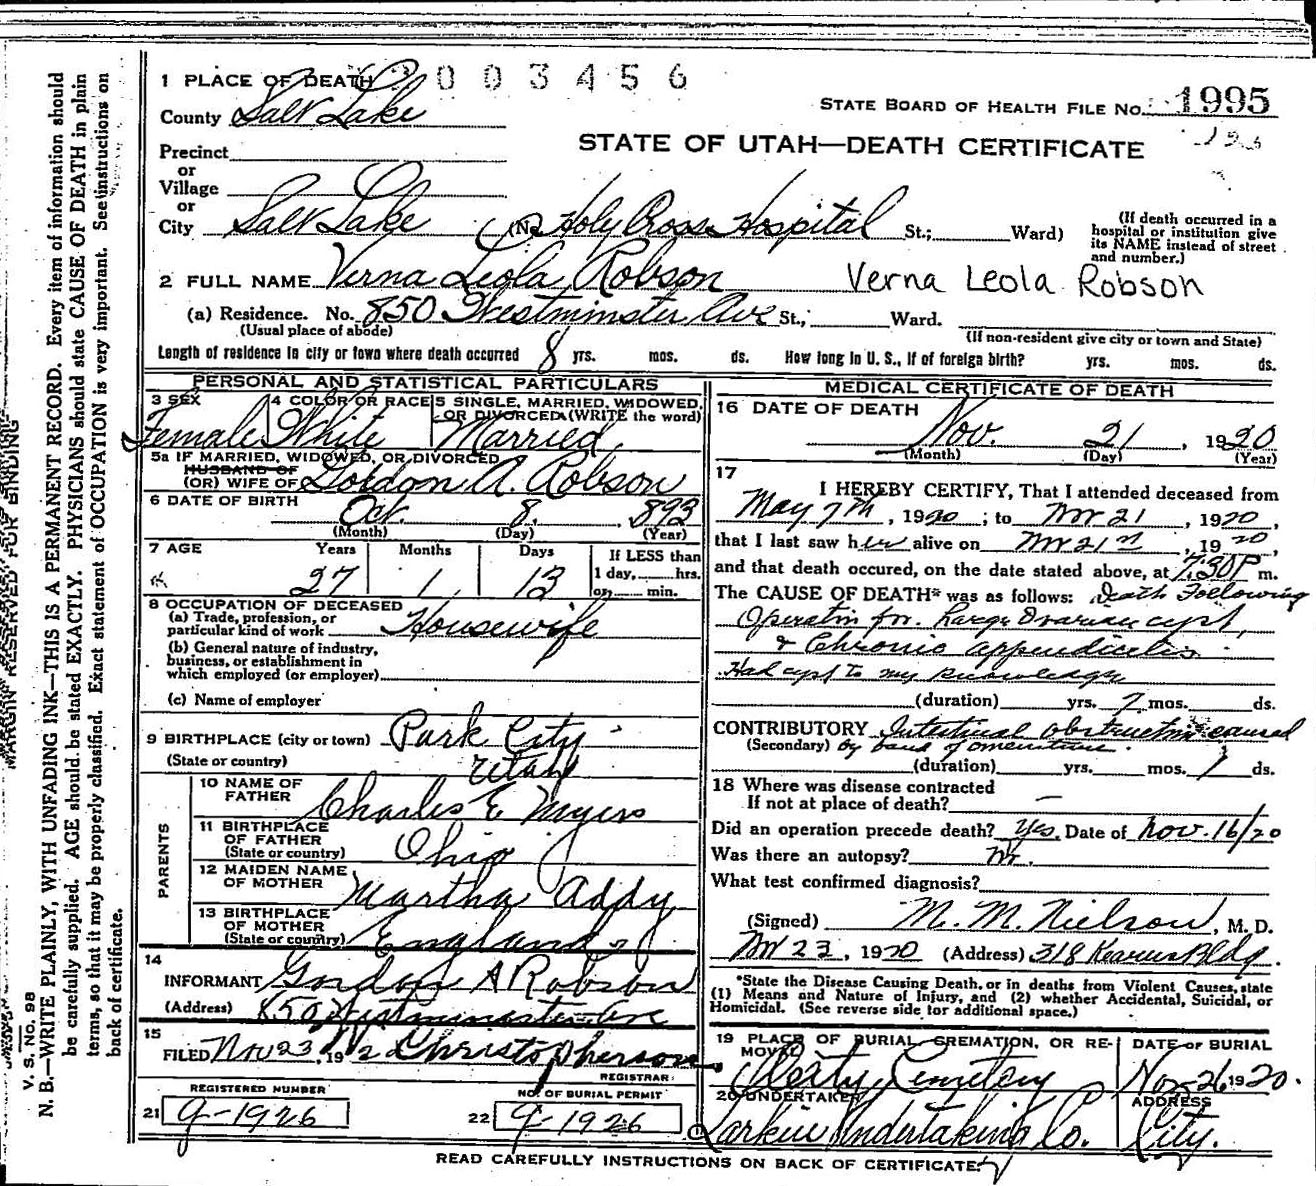 1 PLACE OF DEATH 003456
County Salt Lake
STATE BOARD OF HEALTH FILE No. 1995
STATE OF UTAH—DEATH CERTIFICATE
Precinct
or
Village
or
City Salt Lake (No. Holy Cross Hospital St.; Ward)
(If death occurred in a
hospital or institution give
its NAME instead of street
and number.)
2 FULL NAME Verna Leola Robson Verna Leola Robson
(a) Residence. No. 850 Westminster Ave St.; Ward.
(Usual place of abode) (If non-resident give city or town and State)
Length of residence in city or town where death occurred 8 yrs. mos. ds. How long in U. S., if of foreign birth? yrs. mos. ds.
PERSONAL AND STATISTICAL PARTICULARS
3 SEX 4 COLOR OR RACE 5 SINGLE, MARRIED, WIDOWED,
OR DIVORCED (WRITE the word)
Female White Married
5a IF MARRIED, WIDOWED, OR DIVORCED
HUSBAND OF
(OR) WIFE OF Gordon A. Robson
6 DATE OF BIRTH
Oct. 8, 893
(Month) (Day) (Year)
7 AGE Years Months Days If LESS than
1 day, hrs.
27 1 13 or min.
8 OCCUPATION OF DECEASED
(a) Trade, profession, or
particular kind of work Housewife
(b) General nature of industry,
business, or establishment in
which employed (or employer)
(c) Name of employer
9 BIRTHPLACE (city or town) Park City
(State or country) Utah
PARENTS
10 NAME OF
FATHER Charles E Myers
11 BIRTHPLACE
OF FATHER
(State or country) Ohio
12 MAIDEN NAME
OF MOTHER Martha Addy
13 BIRTHPLACE
OF MOTHER
(State or country) England
14
INFORMANT Gordon A Robson
(Address) 850 Westminster Ave
15
FILED Nov 23, 192 Christopherson
REGISTRAR
REGISTERED NUMBER NO. OF BURIAL PERMIT
21 9-1926 22 9-1926
MEDICAL CERTIFICATE OF DEATH
16 DATE OF DEATH
Nov. 21, 1920
(Month) (Day) (Year)
17
I HEREBY CERTIFY, That I attended deceased from
May 7th, 1920; to Nov 21, 1920,
that I last saw her alive on Nov 21st, 1920,
and that death occured, on the date stated above, at 7:30 P m.
The CAUSE OF DEATH* was as follows: Death Following
Operation for Large Ovarian cyst,
& Chronic appendicitis.
Had cyst to my knowledge
(duration) yrs. 7 mos. ds.
CONTRIBUTORY Intestinal obstruction caused
(Secondary) by band of omentum.
(duration) yrs. mos. 1 ds.
18 Where was disease contracted
If not at place of death? —
Did an operation precede death? Yes. Date of Nov. 16/20
Was there an autopsy? No.
What test confirmed diagnosis?
(Signed) M. M. Nielson, M. D.
Nov 23, 1920 (Address) 318 Kearns Bldg.
*State the Disease Causing Death, or in deaths from Violent Causes, state
(1) Means and Nature of Injury, and (2) whether Accidental, Suicidal, or
Homicidal. (See reverse side for additional space.)
19 PLACE OF BURIAL, CREMATION, OR RE-
MOVAL DATE OF BURIAL
Cemetery Nov 26 1920.
20 UNDERTAKER ADDRESS
Larkin Undertaking Co. City.
READ CAREFULLY INSTRUCTIONS ON BACK OF CERTIFICATE.
MARGIN RESERVED FOR BINDING
V. S. NO. 98
N. B.—WRITE PLAINLY, WITH UNFADING INK—THIS IS A PERMANENT RECORD. Every item of information should
be carefully supplied. AGE should be stated EXACTLY. PHYSICIANS should state CAUSE OF DEATH in plain
terms, so that it may be properly classified. Exact statement of OCCUPATION is very important. See instructions on
back of certificate.